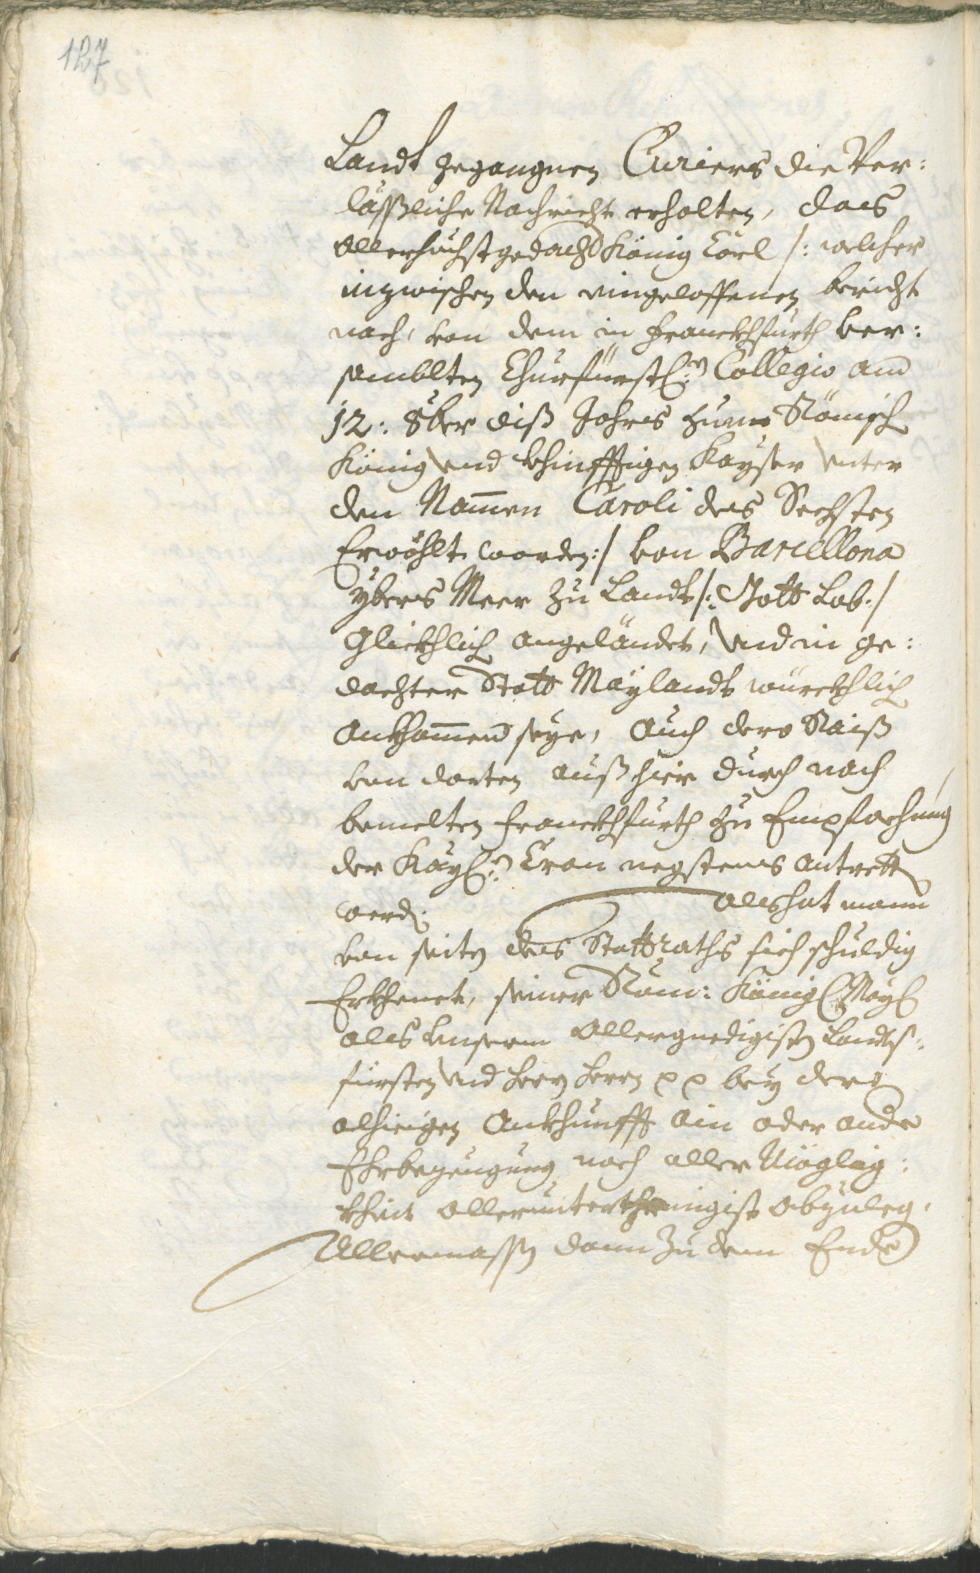 127
Landt gegangnen Curiers die Ver:
läßliche Nachricht erhalten, das
allerhöchstgedacht König Carl /: welcher
inzwischen den eingeloffenen bericht
nach, von dem in Franckhfurth ver:
samblten Churfürstl: Collegio am
12: 8ber diß Jahres zum Römisch
König vnd khünfftigen Kayser vnter
den Nammen Caroli des Sechsten
Erwöhlt worden:/ von Barcellona
ybers Meer zu Landt /: Gott Lob:/
Glickhlich angeländet, vnd in ge:
dachter Statt Maylandt würckhlich
Ankhommen seye, auch dero Raiß
von dorten auß hier durch nach
bemelten Franckhfurth zu Empfachung
der Kayl: Cron negstens antrett
werd: als hat mann
von seiten des Stattraths sich schuldig
Erkhenet, seiner Röm: Königl: Mayl:
als vnserm Allergnedigisten Landts:
fürsten vnd Herrn Herrn pp bey dero
alhieigen Ankhunfft ain oder andre
Ehrbezeugung nach aller Möglig:
kheit allerunterthenigist abzuleg:
Allermassen dann zu dem Ende